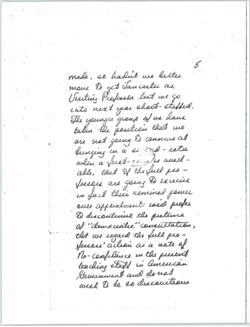 5
made, so hadn't we better
move to get Lancaster as
Visiting Professor lest we go
into next year short-staffed.
The younger group of us have
taken the position that we
are not going to connive at
bringing in a second-rater
when a first-rater is avail-
able, that if the full pro-
fessors are going to exercise
in fact their nominal power
over appointment we'd prefer
to discontinue the pretense
of "democratic" consultation,
that we regard the full pro-
fessors' action as a vote of
No-confidence in the present
teaching staff in American
Government and do not
wish to be so discourteous